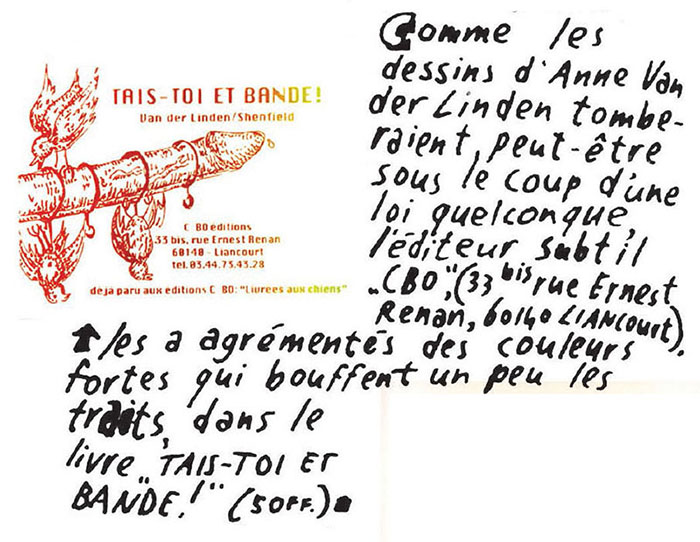 TAIS-TOI ET BANDE!
Van der Linden/Shenfield
C BO editions
33 bis, rue Ernest Renan
60140 - Liancourt
tel. 03.44.73.43.28
deja paru aux editions C BO: "Livrees aux chiens"
Comme les
dessins d'Anne Van
der Linden tombe-
raient, peut-être
sous le coup d'une
loi quelconque,
l'éditeur subtil
"CBO", (33 bis rue Ernest
Renan, 60140 LIANCOURT),
les a agrémentés des couleurs
fortes qui bouffent un peu les
traits, dans le
livre "TAIS-TOI ET
BANDE!" (50FF.)